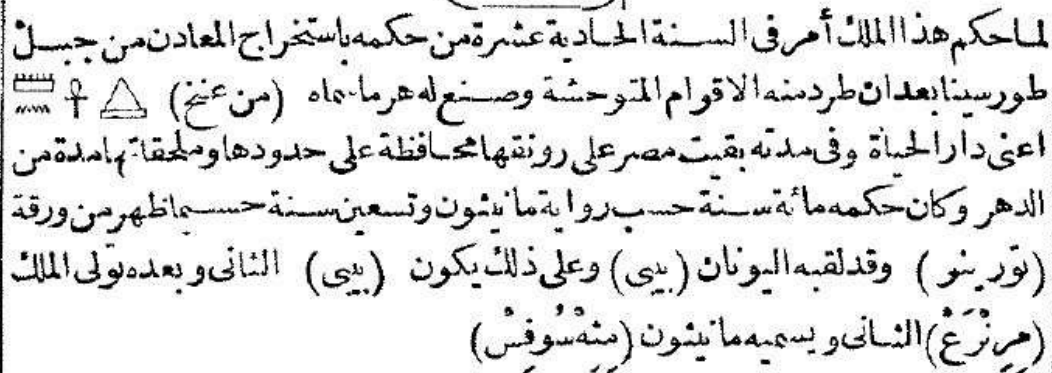 لما حكم هذا الملك أمر فى السنة الحادية عشرة من حكمه باستخراج المعادن من جبل
طور سينا بعد ان طرد منه الاقوام المتوحشة وصنع له هرما سماه (من عنخ) 𓏠𓈖 𓋹 𓉴
اعنى دار الحياة وفى مدته بقيت مصر على رونقها محافظة على حدودها وملحقاتها مدة من
الدهر وكان حكمه مائة سنة حسب رواية مانيثون وتسعين سنة حسبما ظهر من ورقة
(تورينو) وقد لقبه اليونان (بيى) وعلى ذلك يكون (بيى) الثانى وبعده تولى الملك
(مِرِنْرَعْ) الثانى ويسميه مانيثون (مِنْهْسُوفِسْ)